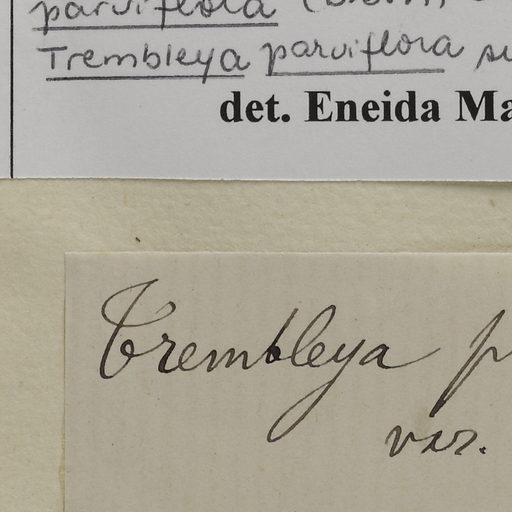 parviflora
Trembleya parviflora
det. Eneida Ma
Trembleya p
var.